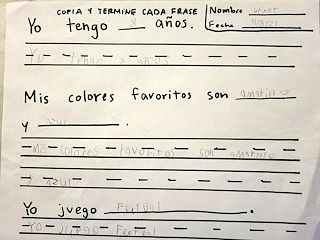 COPIA Y TERMINE CADA FRASE
Nombre GRANT
Fecha 31/8/21
Yo tengo 8 años.
Yo tengo 8 años
Mis colores favoritos son amarillo
y azul.
Mis colores favoritos son amarillo
y azul
Yo juego Futbol.
Yo juego Futbol